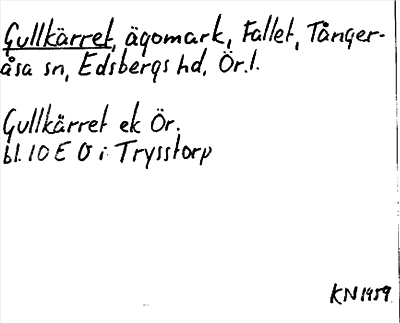 Gullkärret, ägomark, Fallet, Tånger-
åsa sn, Edsbergs hd, Ör. l.
Gullkärret ek Ör.
bl. 10 E Ö i Trysstorp
KN 1959